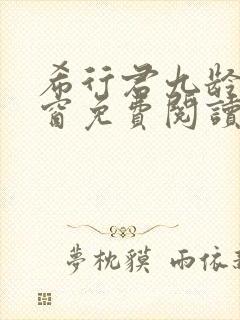 希行君九齡
窗免費閱讀
夢枕貘 雨依